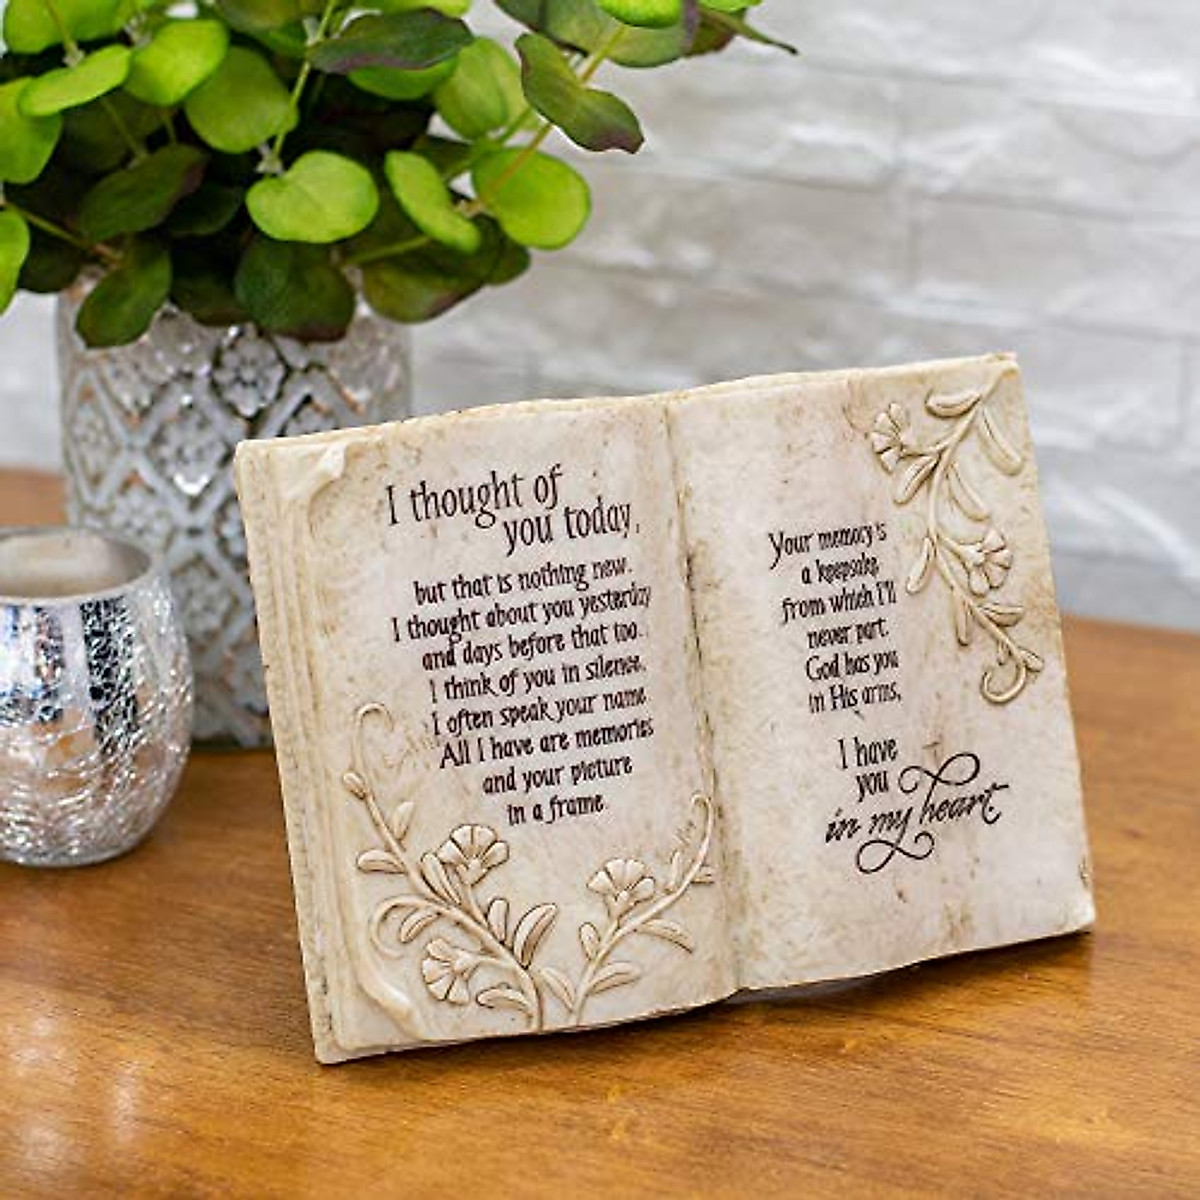 I thought of
you today,
but that is nothing new.
I thought about you yesterday
and days before that too.
I think of you in silence,
I often speak your name
All I have are memories
and your picture
in a frame
Your memory is
a keepsake
from which I'll
never part.
God has you
in His arms,
I have
you
in my heart.